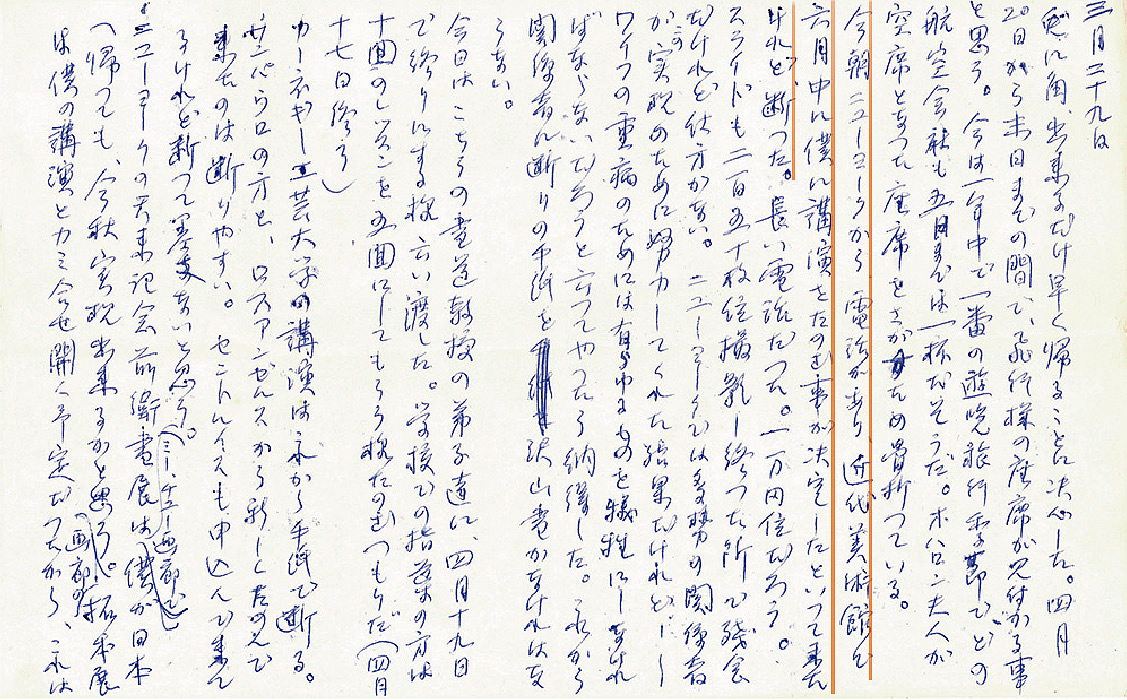 三月二十九日
兎に角、出来るだけ早く帰ることに決心した。四月
20日から末日までの間で、飛行機の座席が見付かる事
と思う。今は一年中で一番の遊覧旅行季節で、どの
航空会社も五月までは一杯だそうだ。ホハロニ夫人が
空席となった座席をさがすため骨折っている。
今朝ニューヨークから電話があり、近代美術館で
六月中に僕に講演をたのむ事が決定したといって来た
けれど断った。長い電話だった。一万円位だろう。
スライドも二百五十枚位撮影し終った所で残念
だけれど仕方がない。ニューヨークでは多勢の関係者
がこの実現のために努力してくれた結果だけれど、し
ワイフの重病のためには有らゆるものを犠牲にしなけれ
ばならないだろうと言ってやったら納得した。これから
関係者に断りの手紙を沢山書かなければな
らない。
今日はこちらの書道教授の弟子達に、四月十九日
で終りにする様、言い渡した。学校での指導の方は
十回のレッスンを五回にしてもらう様たのむつもりだ（四月
十七日終り）
カーネギー工芸大学の講演は、これから手紙で断る。
サンパウロの方と、ロスアンゼルスから新しくたのんで
来たのは断りやすい。セントルイスも申込んで来て
るけれど断って差支ないと思う。
ニューヨークの天来記念前衛書展は（ミ・チュー画廊で）僕が日本
へ帰っても、今秋実現出来るかと思う。拓本展
は僕の講演とカミ合せ開く予定だったから、これは